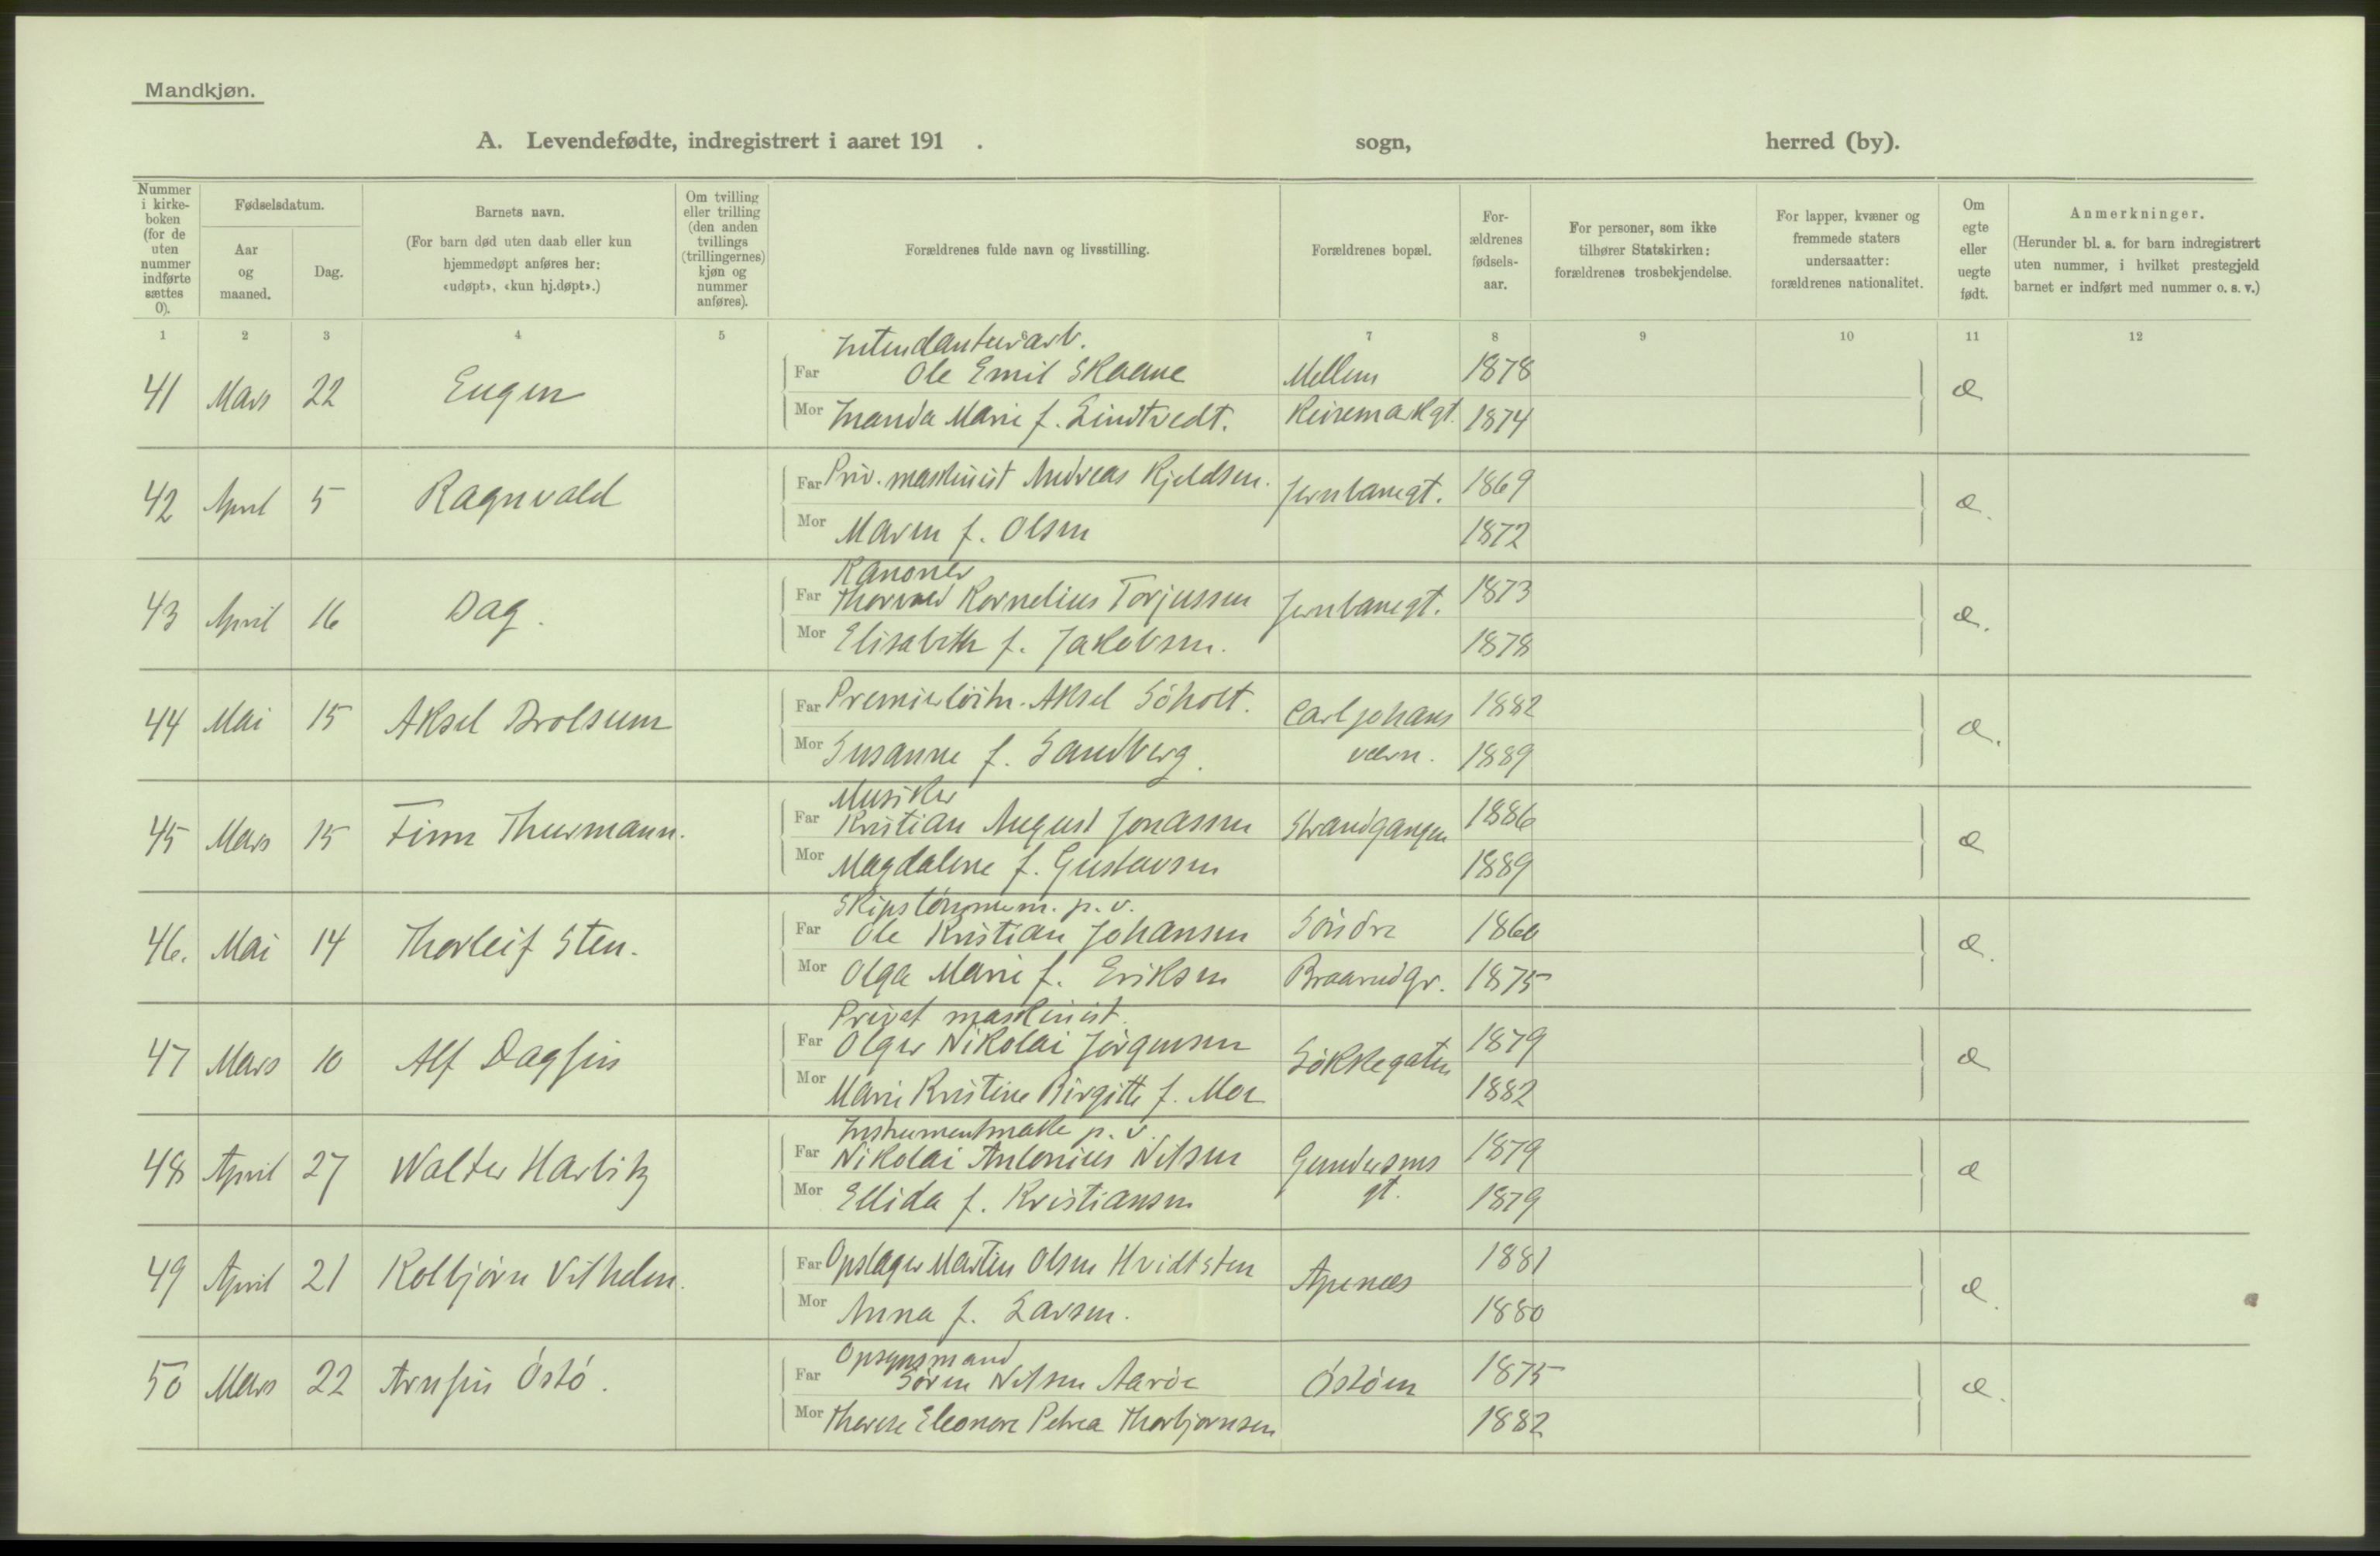 Mandkjøn.
A. Levendefødte, indregistrert i aaret 191 . sogn, herred (by).
Nummer i kirke-boken (for de uten nummer indførte sættes 0).
Fødselsdatum.
Aar og maaned.
Dag.
Barnets navn.
(For barn død uten daab eller kun hjemmedøpt anføres her: «udøpt», «kun hj.døpt».)
Om tvilling eller trilling (den anden tvillings (trillingernes) kjøn og nummer anføres).
Forældrenes fulde navn og livsstilling.
Forældrenes bopæl.
For-ældrenes fødsels-aar.
For personer, som ikke tilhører Statskirken: forældrenes trosbekjendelse.
For lapper, kvæner og fremmede staters undersaatter: forældrenes nationalitet.
Om egte eller uegte født.
Anmerkninger.
(Herunder bl. a. for barn indregistrert uten nummer, i hvilket prestegjeld barnet er indført med nummer o. s. v.)
1 2 3 4 5 6 7 8 9 10 11 12
Intendanturarb.
41 Mars 22 Eugen Far Ole Emil Skaane Mellem 1878 e
Mor Inanda Marie f. Lindtvedt. Keisemarkgt. 1874
42 April 5 Ragnvald Far Priv. maskinist Andreas Kjeldsen. Jernbanegt. 1869 e.
Mor Maren f. Olsen 1872
Kanoner
43 April 16 Dag. Far Thorvald Kornelius Torjussen Jernbanegt. 1873 e.
Mor Elisabeth f. Jakobsen. 1878
44 Mai 15 Aksel Brolsum Far Premierløitn. Aksel Søholt. Carljohans 1882 e.
Mor Susanne f. Sandberg. værn. 1889
Musiker
45 Mars 15 Finn Thurmann. Far Kristian August Jonassen Strandgangen 1886 e
Mor Magdalene f. Gustavsen 1889
Skipstømmerm. p. v.
46. Mai 14 Thorleif Sten. Far Ole Kristian Johansen Søndre 1866 e.
Mor Olga Marie f. Eriksen Braarudgr. 1875
Privat maskinist.
47 Mars 10 Alf Dagfin Far Olger Nikolai Jørgensen Søkkegaten 1879 e
Mor Marie Kristine Birgitte f. Moe 1882
Instrumentmake p. v.
48 April 27 Walter Harbitz Far Nikolai Antonius Nilsen Gundersens 1879 e
Mor Ellida f. Kristiansen gt. 1879
49 April 21 Kolbjørn Vilhelm. Far Opslager Martin Olsen Hvidtsten Apenæs 1881 e.
Mor Anna f. Larsen. 1880
Opsynsmand
50 Mars 22 Arnfin Østø. Far Søren Nilsen Aarøe Østøen 1875 e.
Mor Therese Eleonore Petrea Thorbjørnsen 1882